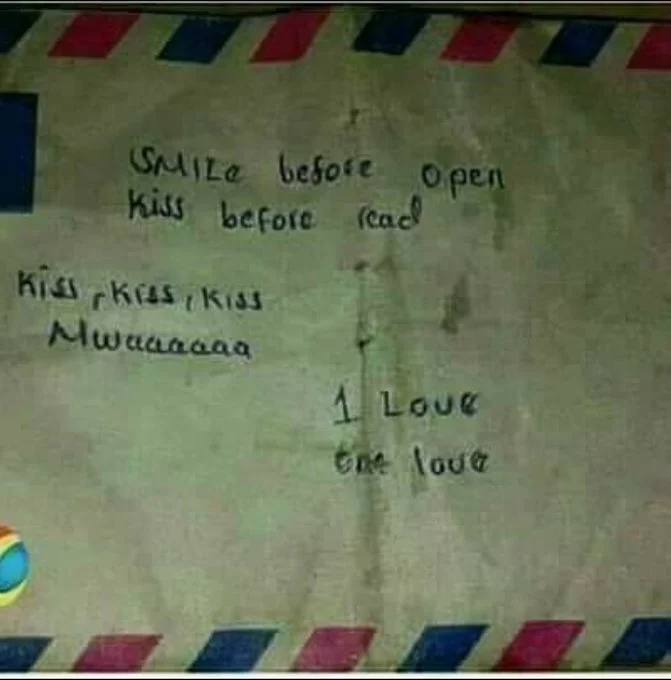 SMILe before open
Kiss before read
Kiss, Kiss, Kiss
Mwaaaaaa
1 Love
one love